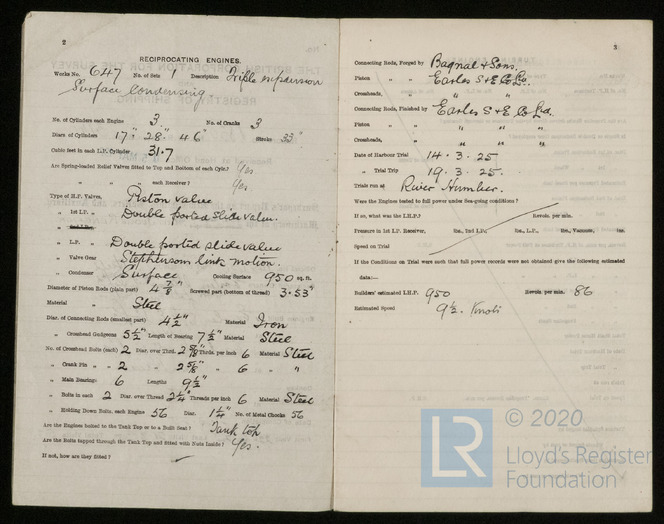 2
RECIPROCATING ENGINES.
Works No. 647 No. of Sets 1 Description Triple expansion
Surface Condensing
No. of Cylinders each Engine 3 No. of Cranks 3
Diars. of Cylinders 17" 28" 46" Stroke 33"
Cubic feet in each L.P. Cylinder 31.7
Are Spring-loaded Relief Valves fitted to Top and Bottom of each Cylr.? Yes
" " " each Receiver? Yes
Type of H.P. Valves, Piston valve
" 1st I.P. " Double ported slide valve.
" 2nd I.P. "
" L.P. " Double ported slide valve
" Valve Gear Stephenson link motion.
" Condenser Surface Cooling Surface 950 sq. ft.
Diameter of Piston Rods (plain part) 4 7/8" Screwed part (bottom of thread) 3.53"
Material Steel
Diar. of Connecting Rods (smallest part) 4 1/2" Material Iron
" Crosshead Gudgeons 5 1/2" Length of Bearing 7 1/2" Material Steel
No. of Crosshead Bolts (each) 2 Diar. over Thrd. 2 5/8" Thrds. per inch 6 Material Steel
" Crank Pin " 2 " 2 5/8" " 6 " "
" Main Bearings 6 Lengths 9 1/2"
" Bolts in each 2 Diar. over Thread 2 1/4" Threads per inch 6 Material Steel
" Holding Down Bolts, each Engine 56 Diar. 1 1/4" No. of Metal Chocks 56
Are the Engines bolted to the Tank Top or to a Built Seat? Tank top
Are the Bolts tapped through the Tank Top and fitted with Nuts Inside? Yes.
If not, how are they fitted?
3
Connecting Rods, Forged by Bagnal & Sons.
Piston " " Earles S & E Co Ld.
Crossheads, "
Connecting Rods, Finished by Earles S & E Co Ld.
Piston " " " " "
Crossheads, " " " "
Date of Harbour Trial 14 . 3 . 25
" Trial Trip 19 . 3 . 25.
Trials run at River Humber.
Were the Engines tested to full power under Sea-going conditions?
If so, what was the I.H.P.? Revols. per min.
Pressure in 1st I.P. Receiver, lbs., 2nd I.P., lbs., L.P., lbs., Vacuum, ins.
Speed on Trial
If the Conditions on Trial were such that full power records were not obtained give the following estimated
data:—
Builders' estimated I.H.P. 950 Revols. per min. 86
Estimated Speed 9 1/2. Knots
LR © 2020
Lloyd's Register
Foundation